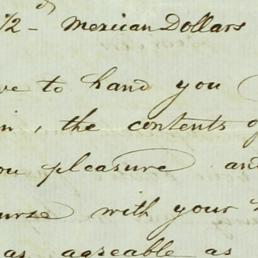 72 - Mexican Dollars
ve to hand you
in, the contents of
ou pleasure and
urse with your
as agreable as